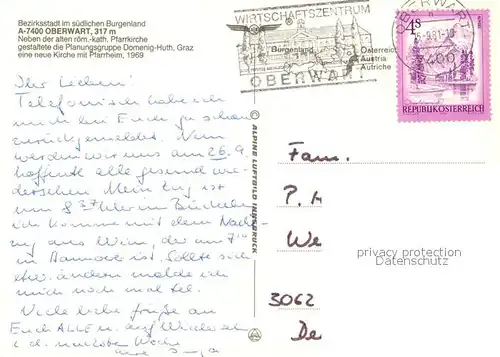 Bezirksstadt im südlichen Burgenland
A-7400 OBERWART, 317 m
Neben der alten röm.-kath. Pfarrkirche
gestaltete die Planungsgruppe Domenig-Huth, Graz
eine neue Kirche mit Pfarrheim, 1969
WIRTSCHAFTSZENTRUM
Burgenland
OBERWART
Österreich
Austria
Autriche
OBERWART
7400
4S
REPUBLIK ÖSTERREICH
Ihr Lieben!
Telefonisch habe ich
mich bei Euch ja schon
zurückgemeldet. Nun
werden wir uns am 26.9.
hoffentl. alle gesund wie-
dersehen. Mein Zug ist
um 8 37 Uhr in Bückeburg
ich komme mit dem Nacht-
zug aus Wien, der um 7 14
in Hannover ist. Sollte sich
etw. ändern melde ich
mich noch mal tel.
Viele liebe Grüße an
Euch ALLE u. auf Wiedersehen
i. d. nächsten Woche
ALPINE LUFTBILD INNSBRUCK
Fam.
P. H
We
3062
De
privacy protection
Datenschutz